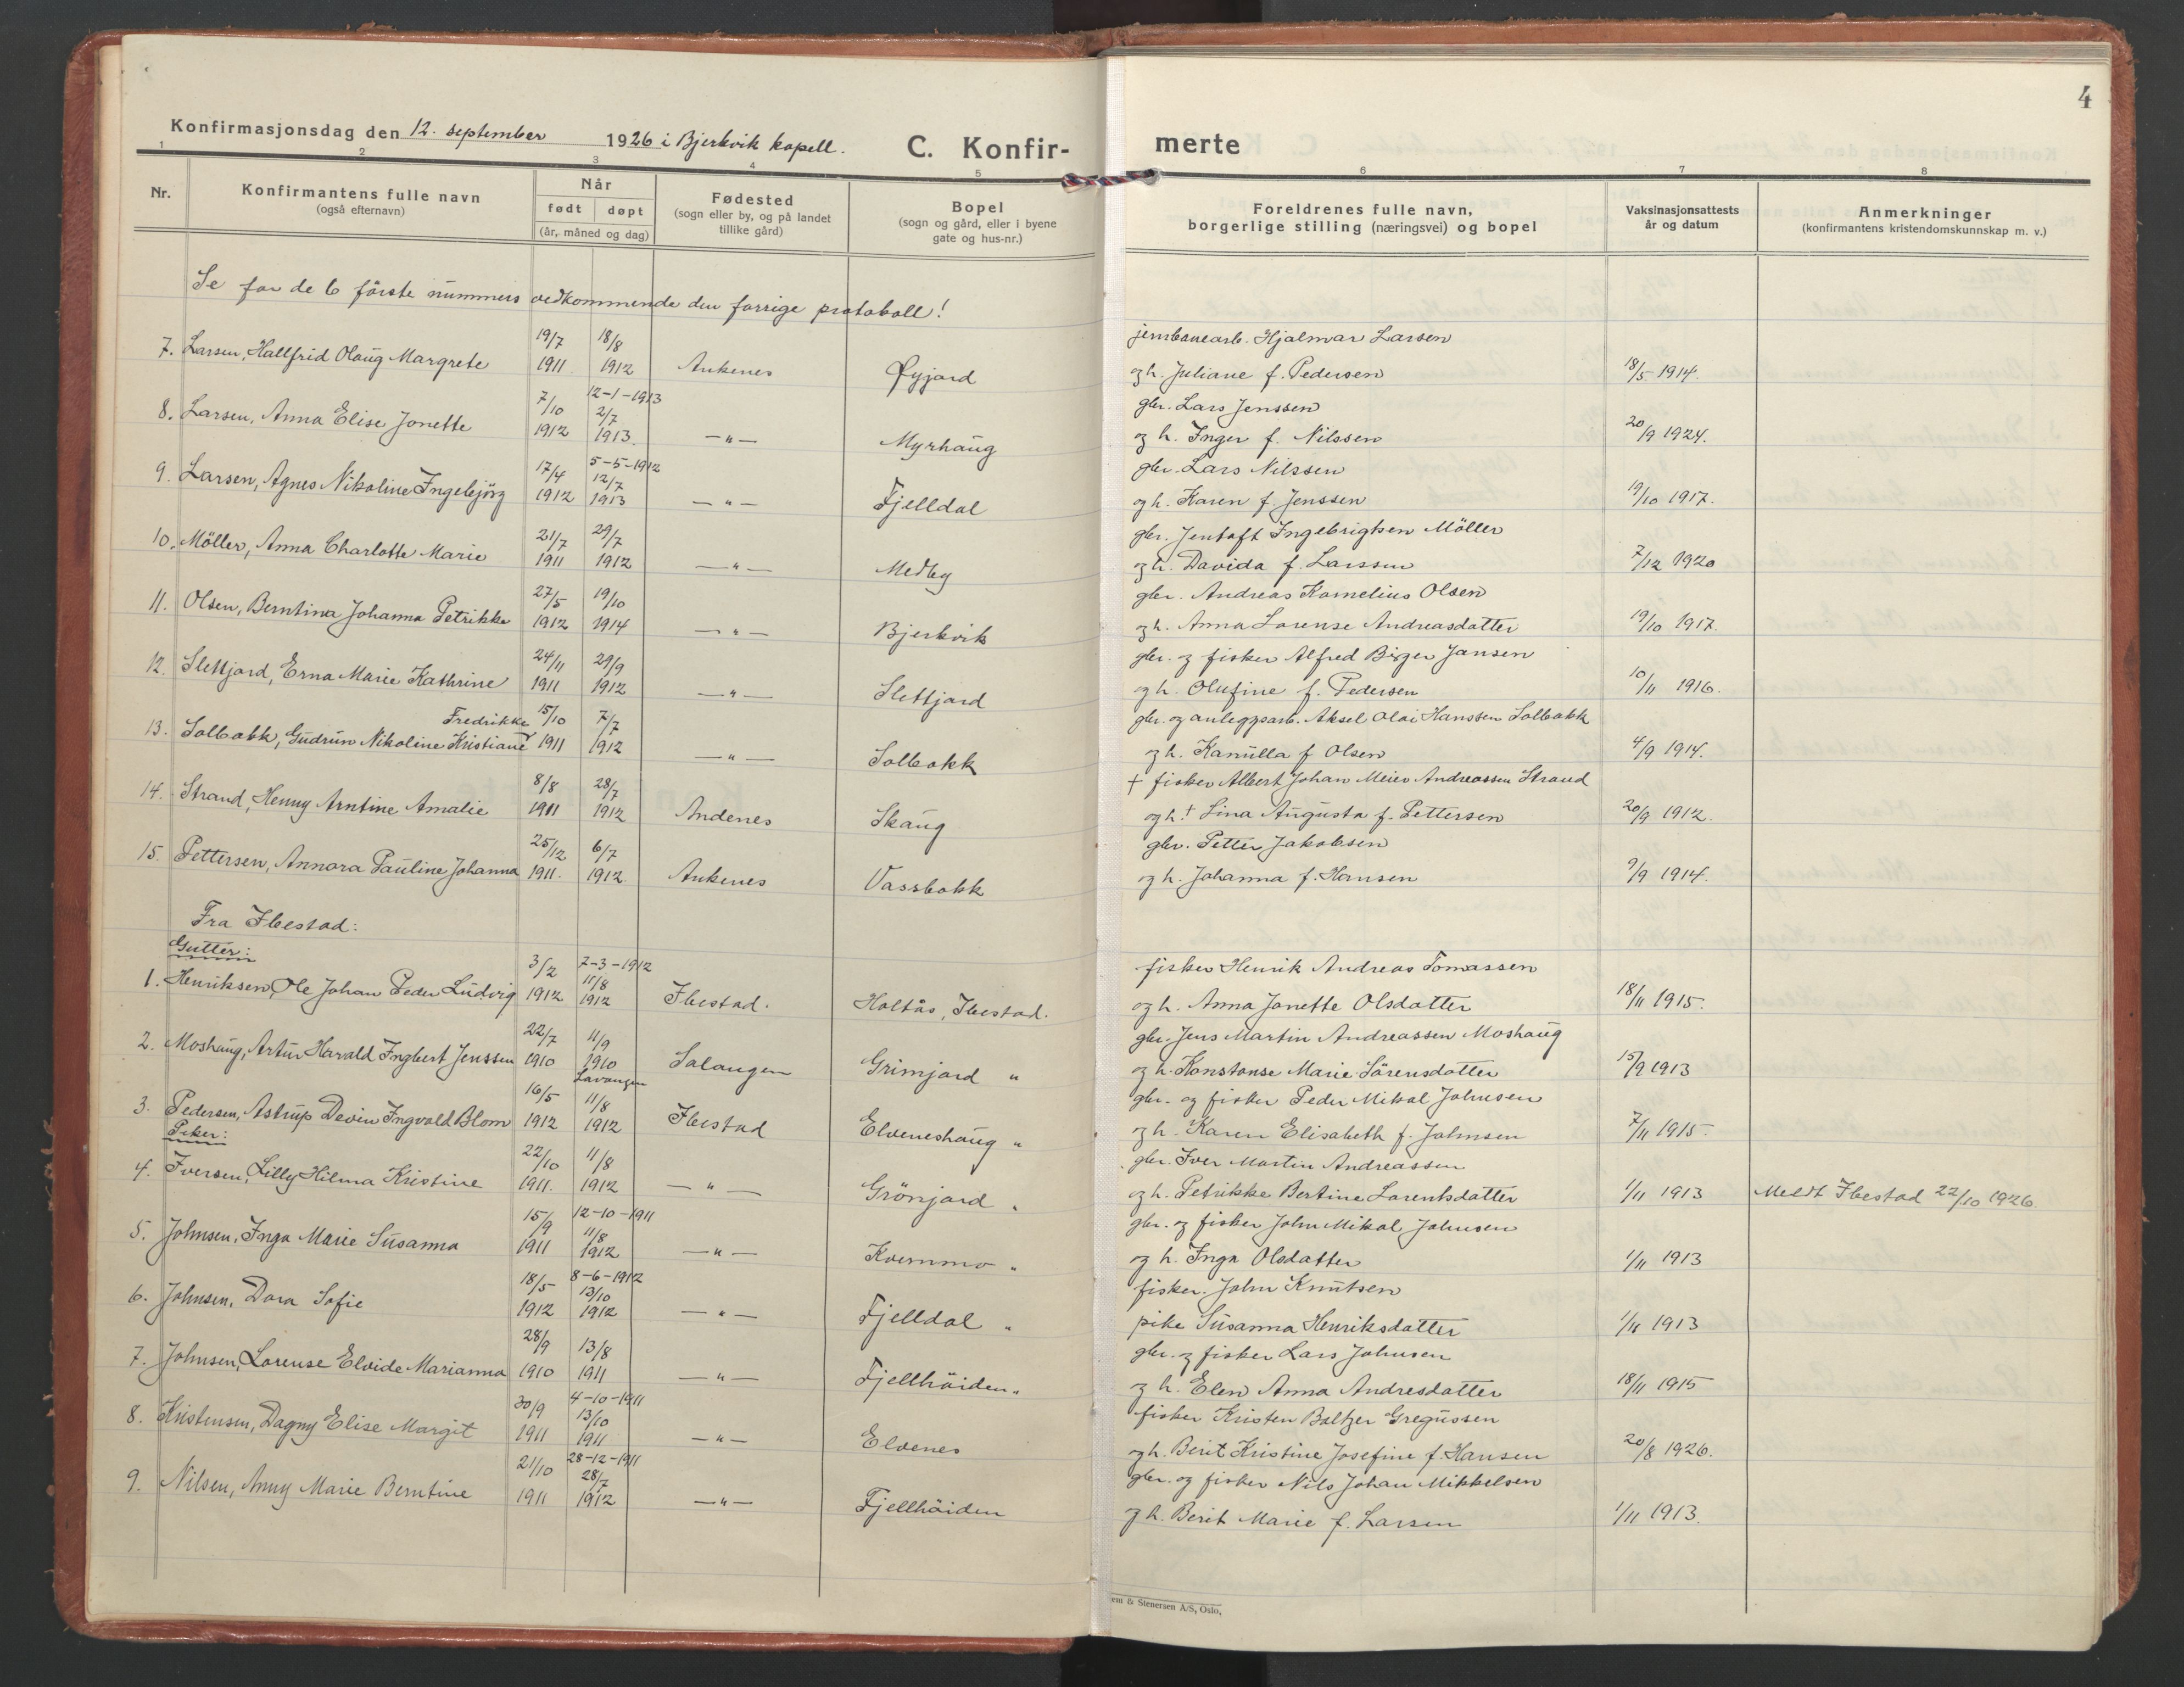 4
Konfirmasjonsdag den 12. september 1926 i Bjerkvik kapell.
C. Konfir-
merte
1 2 3 4 5 6 7 8
Nr.
Konfirmantens fulle navn
(også efternavn)
Når
født døpt
(år, måned og dag)
Fødested
(sogn eller by, og på landet
tillike gård)
Bopel
(sogn og gård, eller i byene
gate og hus-nr.)
Foreldrenes fulle navn,
borgerlige stilling (næringsvei) og bopel
Vaksinasjonsattests
år og datum
Anmerkninger
(konfirmantens kristendomskunnskap m. v.)
Se for de 6 förste nummers vedkommende den forrige protokoll!
19/7 18/8 jernbanearb. Hjalmar Larsen
7. Larsen, Hallfrid Olaug Margrete 1911. 1912 Ankenes Øyjord og h. Juliane f. Pedersen 18/5 1914.
7/10 12-1-1913 2/7 gbr. Lars Jenssen
8. Larsen, Anna Elise Jonette 1912 1913. —„— Myrhaug og h. Inger f. Nilssen 20/9 1924.
17/4 5-5-1912 12/7 gbr. Lars Nilssen
9. Larsen, Agnes Nikoline Ingebjörg 1912 1913 —„— Fjelldal og h. Karen f. Jenssen 19/10 1917.
21/7 29/7 gbr. Jentoft Ingebrigtsen Möller
10. Möller, Anna Charlotte Marie 1911 1912 —„— Medby og h. Davida f. Larssen 7/12 1920
27/5 19/10 gbr. Andreas Kornelius Olsen
11. Olsen, Berntina Johanna Petrikke 1912 1914 —„— Bjerkvik og h. Anna Lorense Andreasdatter 19/10 1917.
24/11 29/9 gbr. og fisker Alfred Birger Jansen
12. Slettjord, Erna Marie Kathrine 1911 1912 —„— Slettjord og h. Olufine f. Pedersen 10/11 1916.
Fredrikke 15/10 7/7 gbr. og anleggsarb. Aksel Olai Hanssen Solbakk
13. Solbakk, Gudrun Nikoline Kristiane 1911 1912 —„— Solbakk og h. Kanulla f. Olsen 4/9 1914.
8/8 28/7 † fisker Albert Johan Meier Andreassen Strand
14. Strand, Henny Arntine Amalie 1911 1912 Andenes Skaug og h. † Lina Augusta f. Pettersen 20/9 1912.
25/12 6/7 gbr. Petter Jakobsen
15. Pettersen, Annora Pauline Johanna 1911. 1912 Ankenes Vassbakk og h. Johanna f. Hansen 9/9 1914.
Fra Ibestad:
Gutter:
3/2 7-3-1912 11/8 fisker Henrik Andreas Tomassen
1. Henriksen, Ole Johan Peder Ludvig 1912 1912 Ibestad. Holtås, Ibestad. og h. Anna Jonette Olsdatter 18/11 1915.
22/7 11/9 gbr. Jens Martin Andreassen Moshaug
2. Moshaug, Artur Harald Ingbert Jenssen 1910 1910 Lavangen Salangen Grimjord „ og h. Konstanse Marie Sörensdatter 15/9 1913
16/5 11/8 gbr. og fisker Peder Mikal Johnsen
3. Pedersen, Astrup Devin Ingvald Blom 1912 1912 Ibestad Elveneshaug „ og h. Karen Elisabeth f. Johnsen 7/11 1915.
Piker:
22/10 11/8 gbr. Iver Martin Andreassen
4. Iversen, Lilly Hilma Kristine 1911. 1912 —„— Grönjord „ og h. Petrikke Bertine Lorentsdatter 1/11 1913 Meldt Ibestad 22/10 1926.
15/9 12-10-1911 11/8 gbr. og fisker John Mikal Johnsen
5. Johnsen, Inga Marie Susanna 1911 1912 —„— Kvernmo „ og h. Inga Olsdatter 1/11 1913
18/5 8-6-1912 13/10 fisker John Knutsen
6. Johnsen, Dora Sofie 1912 1912 —„— Fjelldal „ pike Susanna Henriksdatter 1/11 1913
28/9 13/8 gbr. og fisker Lars Johnsen
7. Johnsen, Lorense Elvide Marianna 1910 1911 —„— Fjellhöiden „ og h. Elen Anna Andresdatter 18/11 1915
30/9 4-10-1911 13/10 fisker Kristen Baltzer Gregussen
8. Kristensen, Dagny Elise Margit 1911 1911 —„— Elvenes og h. Berit Kristine Josefine f. Hansen 20/8 1926.
21/10 28-12-1911 28/7 gbr. og fisker Nils Johan Mikkelsen
9. Nilsen, Anny Marie Berntine 1911 1912 —„— Fjellhöiden og h. Berit Marie f. Larsen 1/11 1913.
& Stenersen A/S, Oslo,